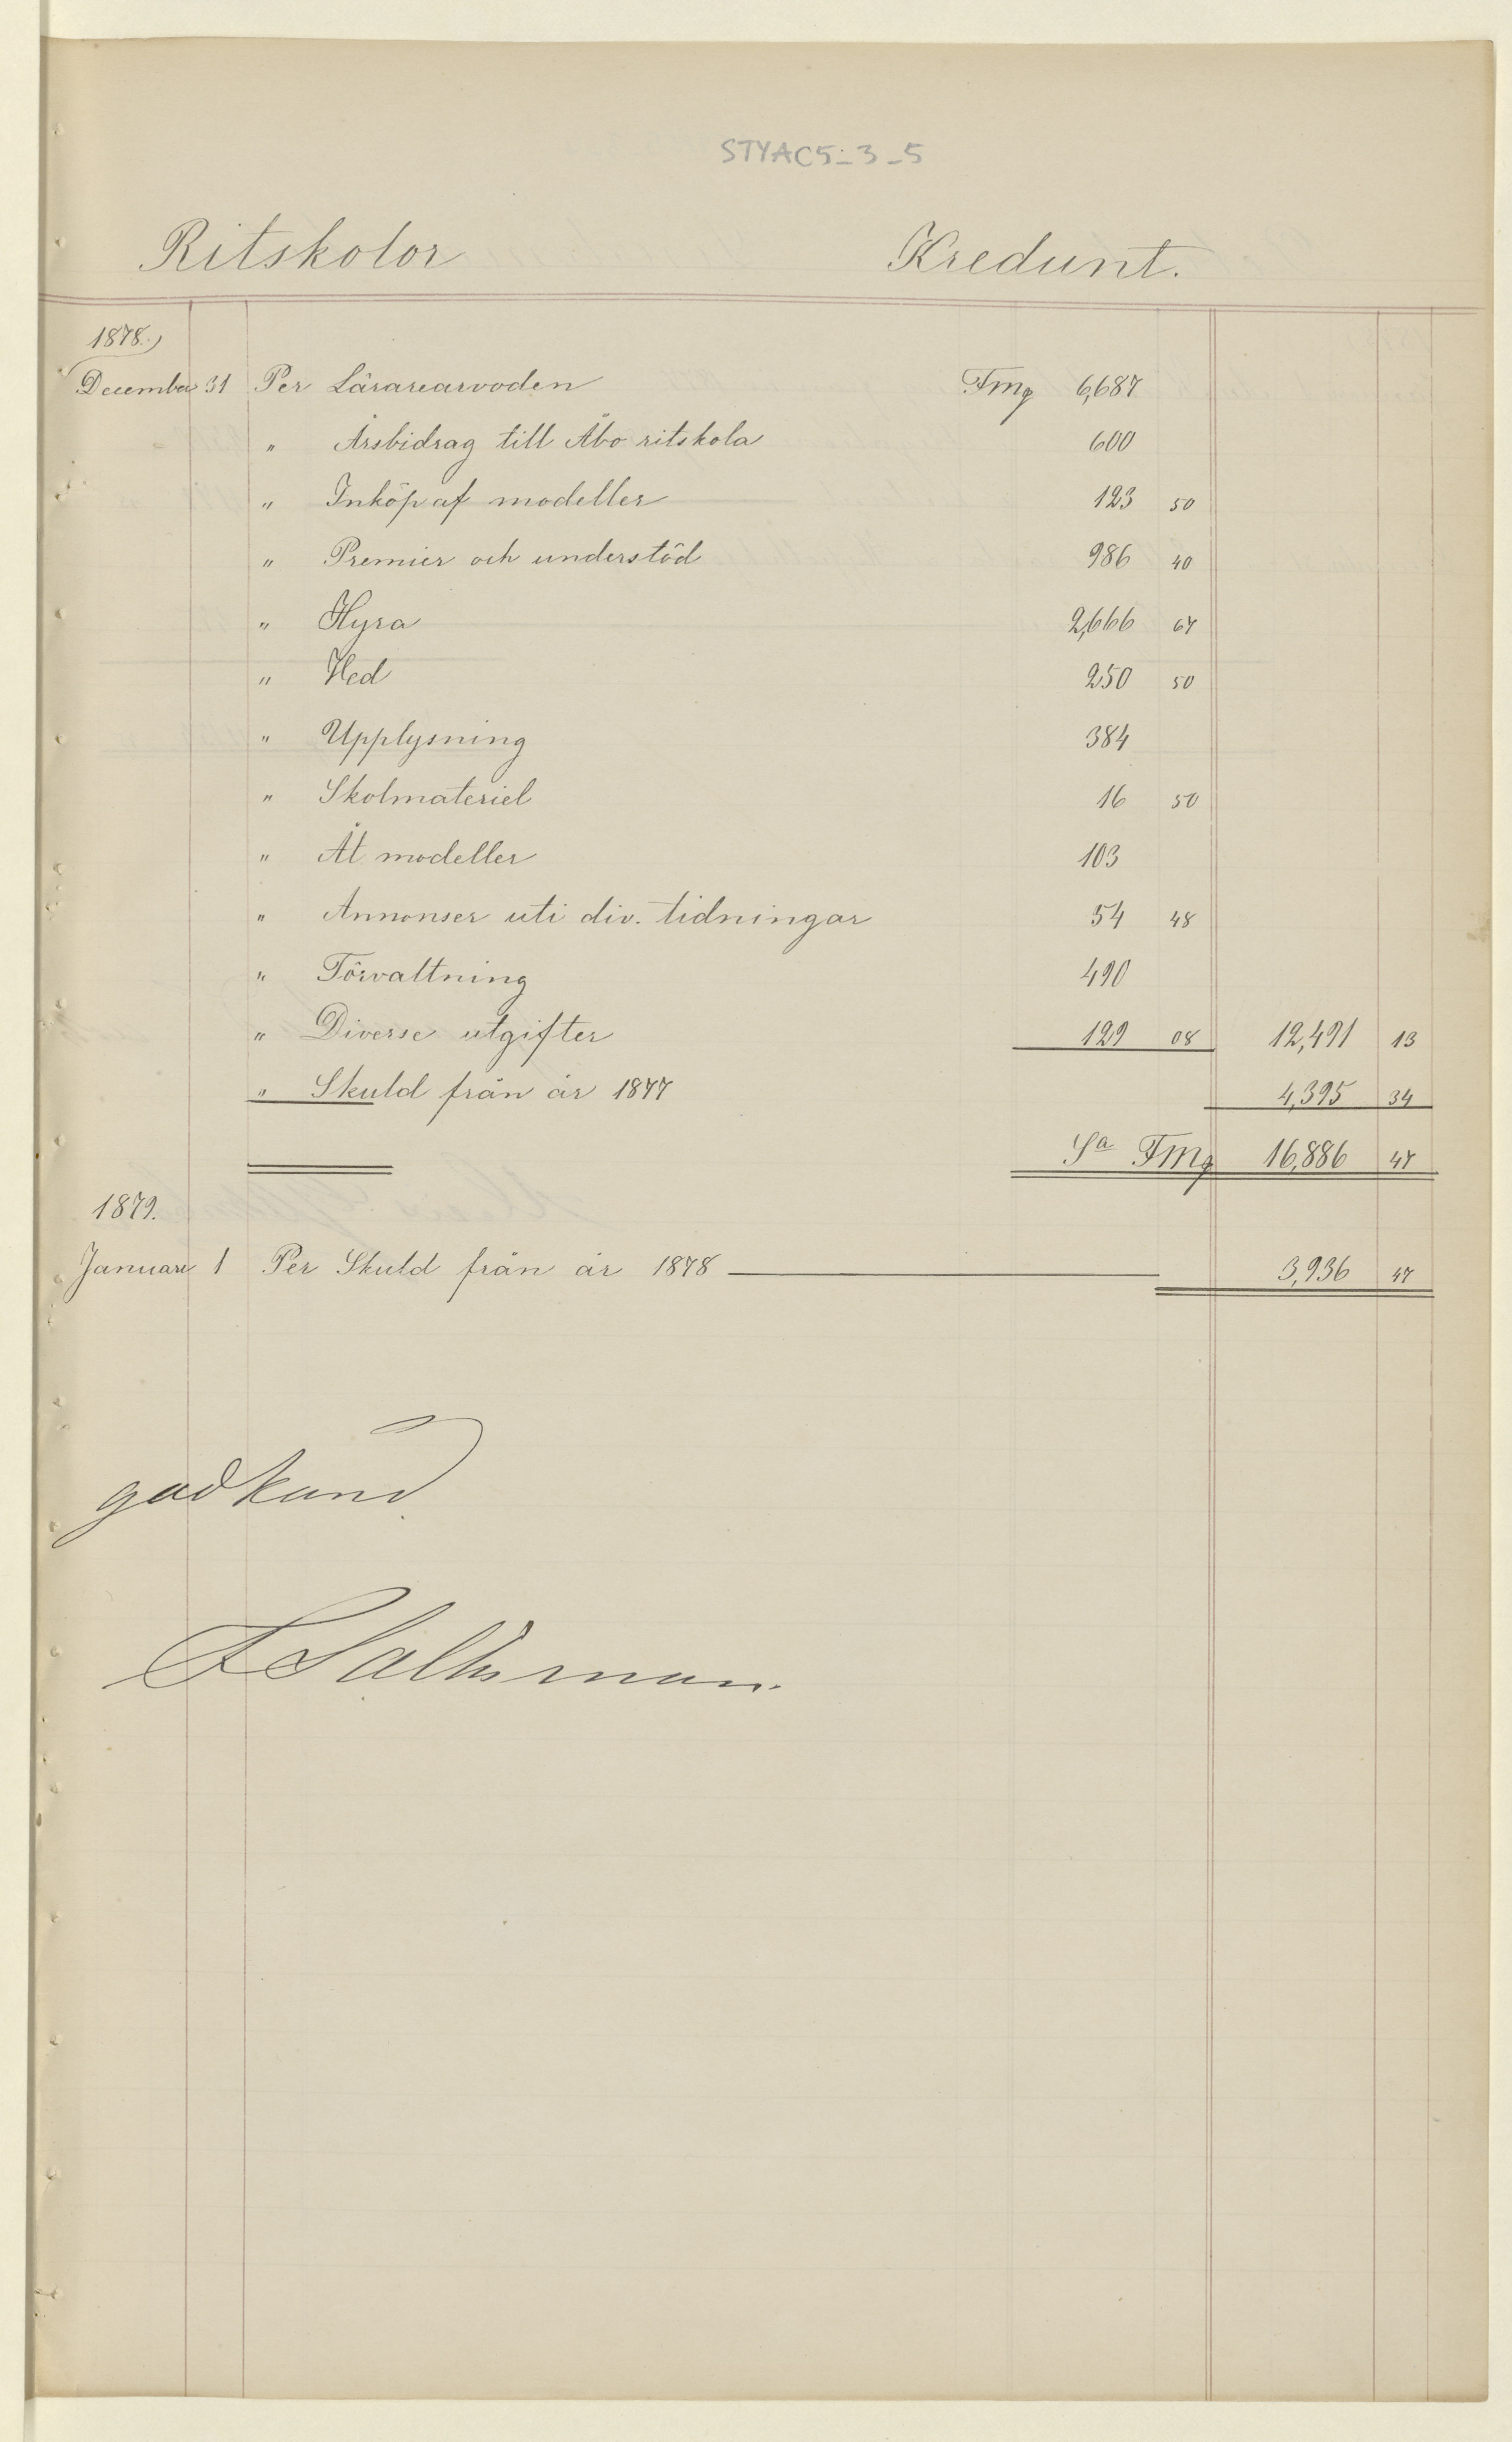 STYAC5_3_5
Ritskolor Kredunt.
1878.
December 31 Per Lärarearvoden Fmg 6,687
" Årsbidrag till Åbo ritskola 600
" Inköp af modeller 123 50
" Premier och understöd 986 40
" Hyra 2,666 67
" Ved 250 50
" Upplysning 384
" Skolmateriel 16 50
" Åt modeller 103
" Annonser uti div. tidningar 54 48
" Förvaltning 490
" Diverse utgifter 129 08 12,491 13
" Skuld från år 1877 4,395 34
Sa Fmg 16,886 47
1879.
Januari 1 Per Skuld från år 1878 3,936 47
godkänd